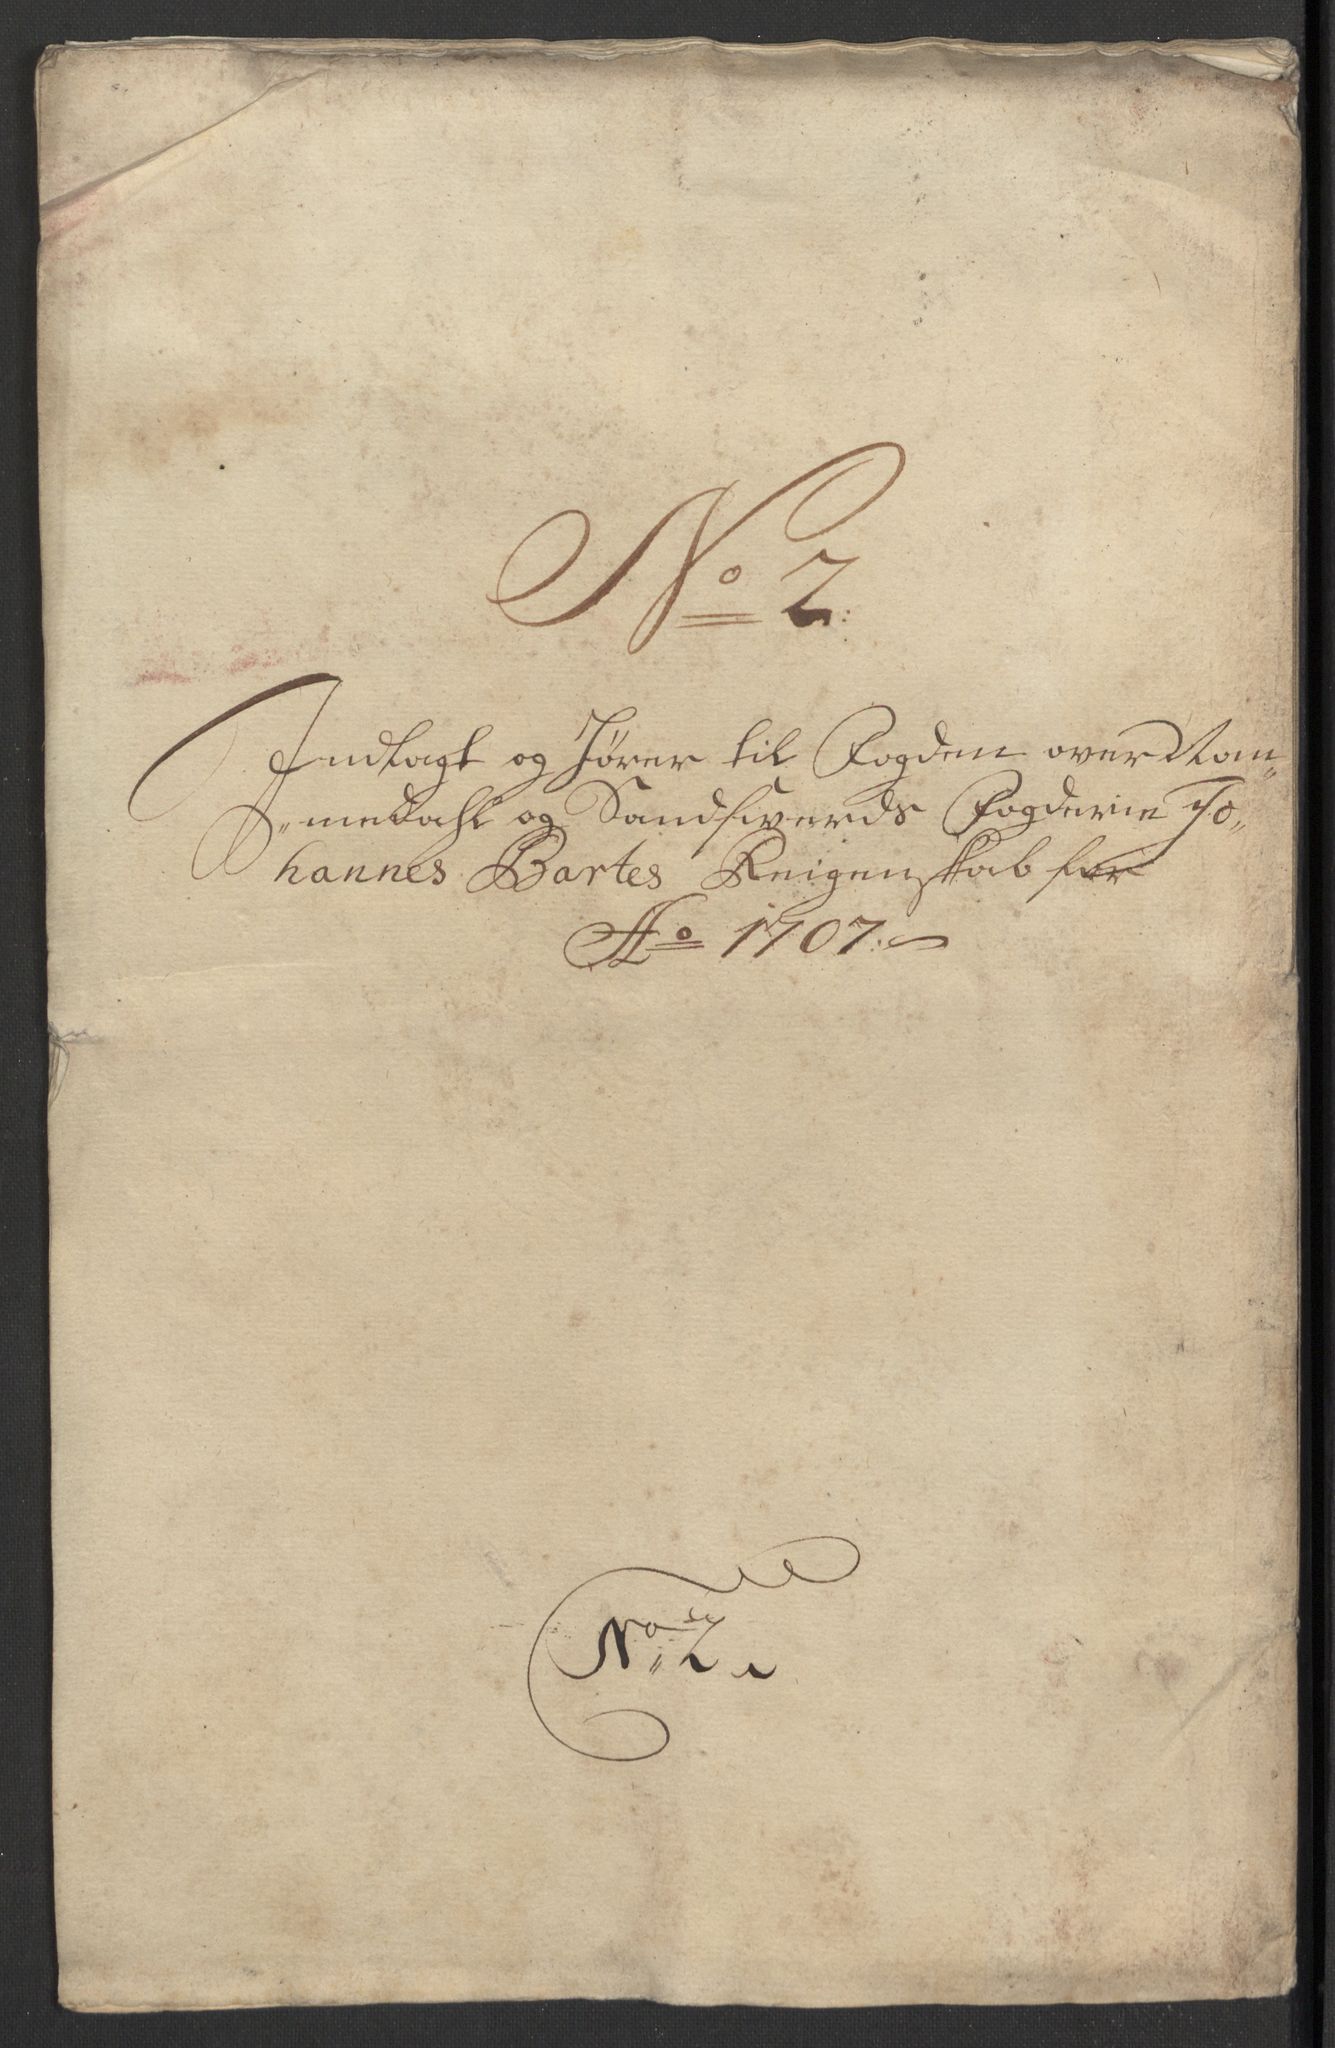 No 2:
Indlagt og Hører til Fogden over Num„
„medahl og Sandsværds Fogderie Jo„
hannes Bartes Reigenskab for
Ao 1707:
No 2